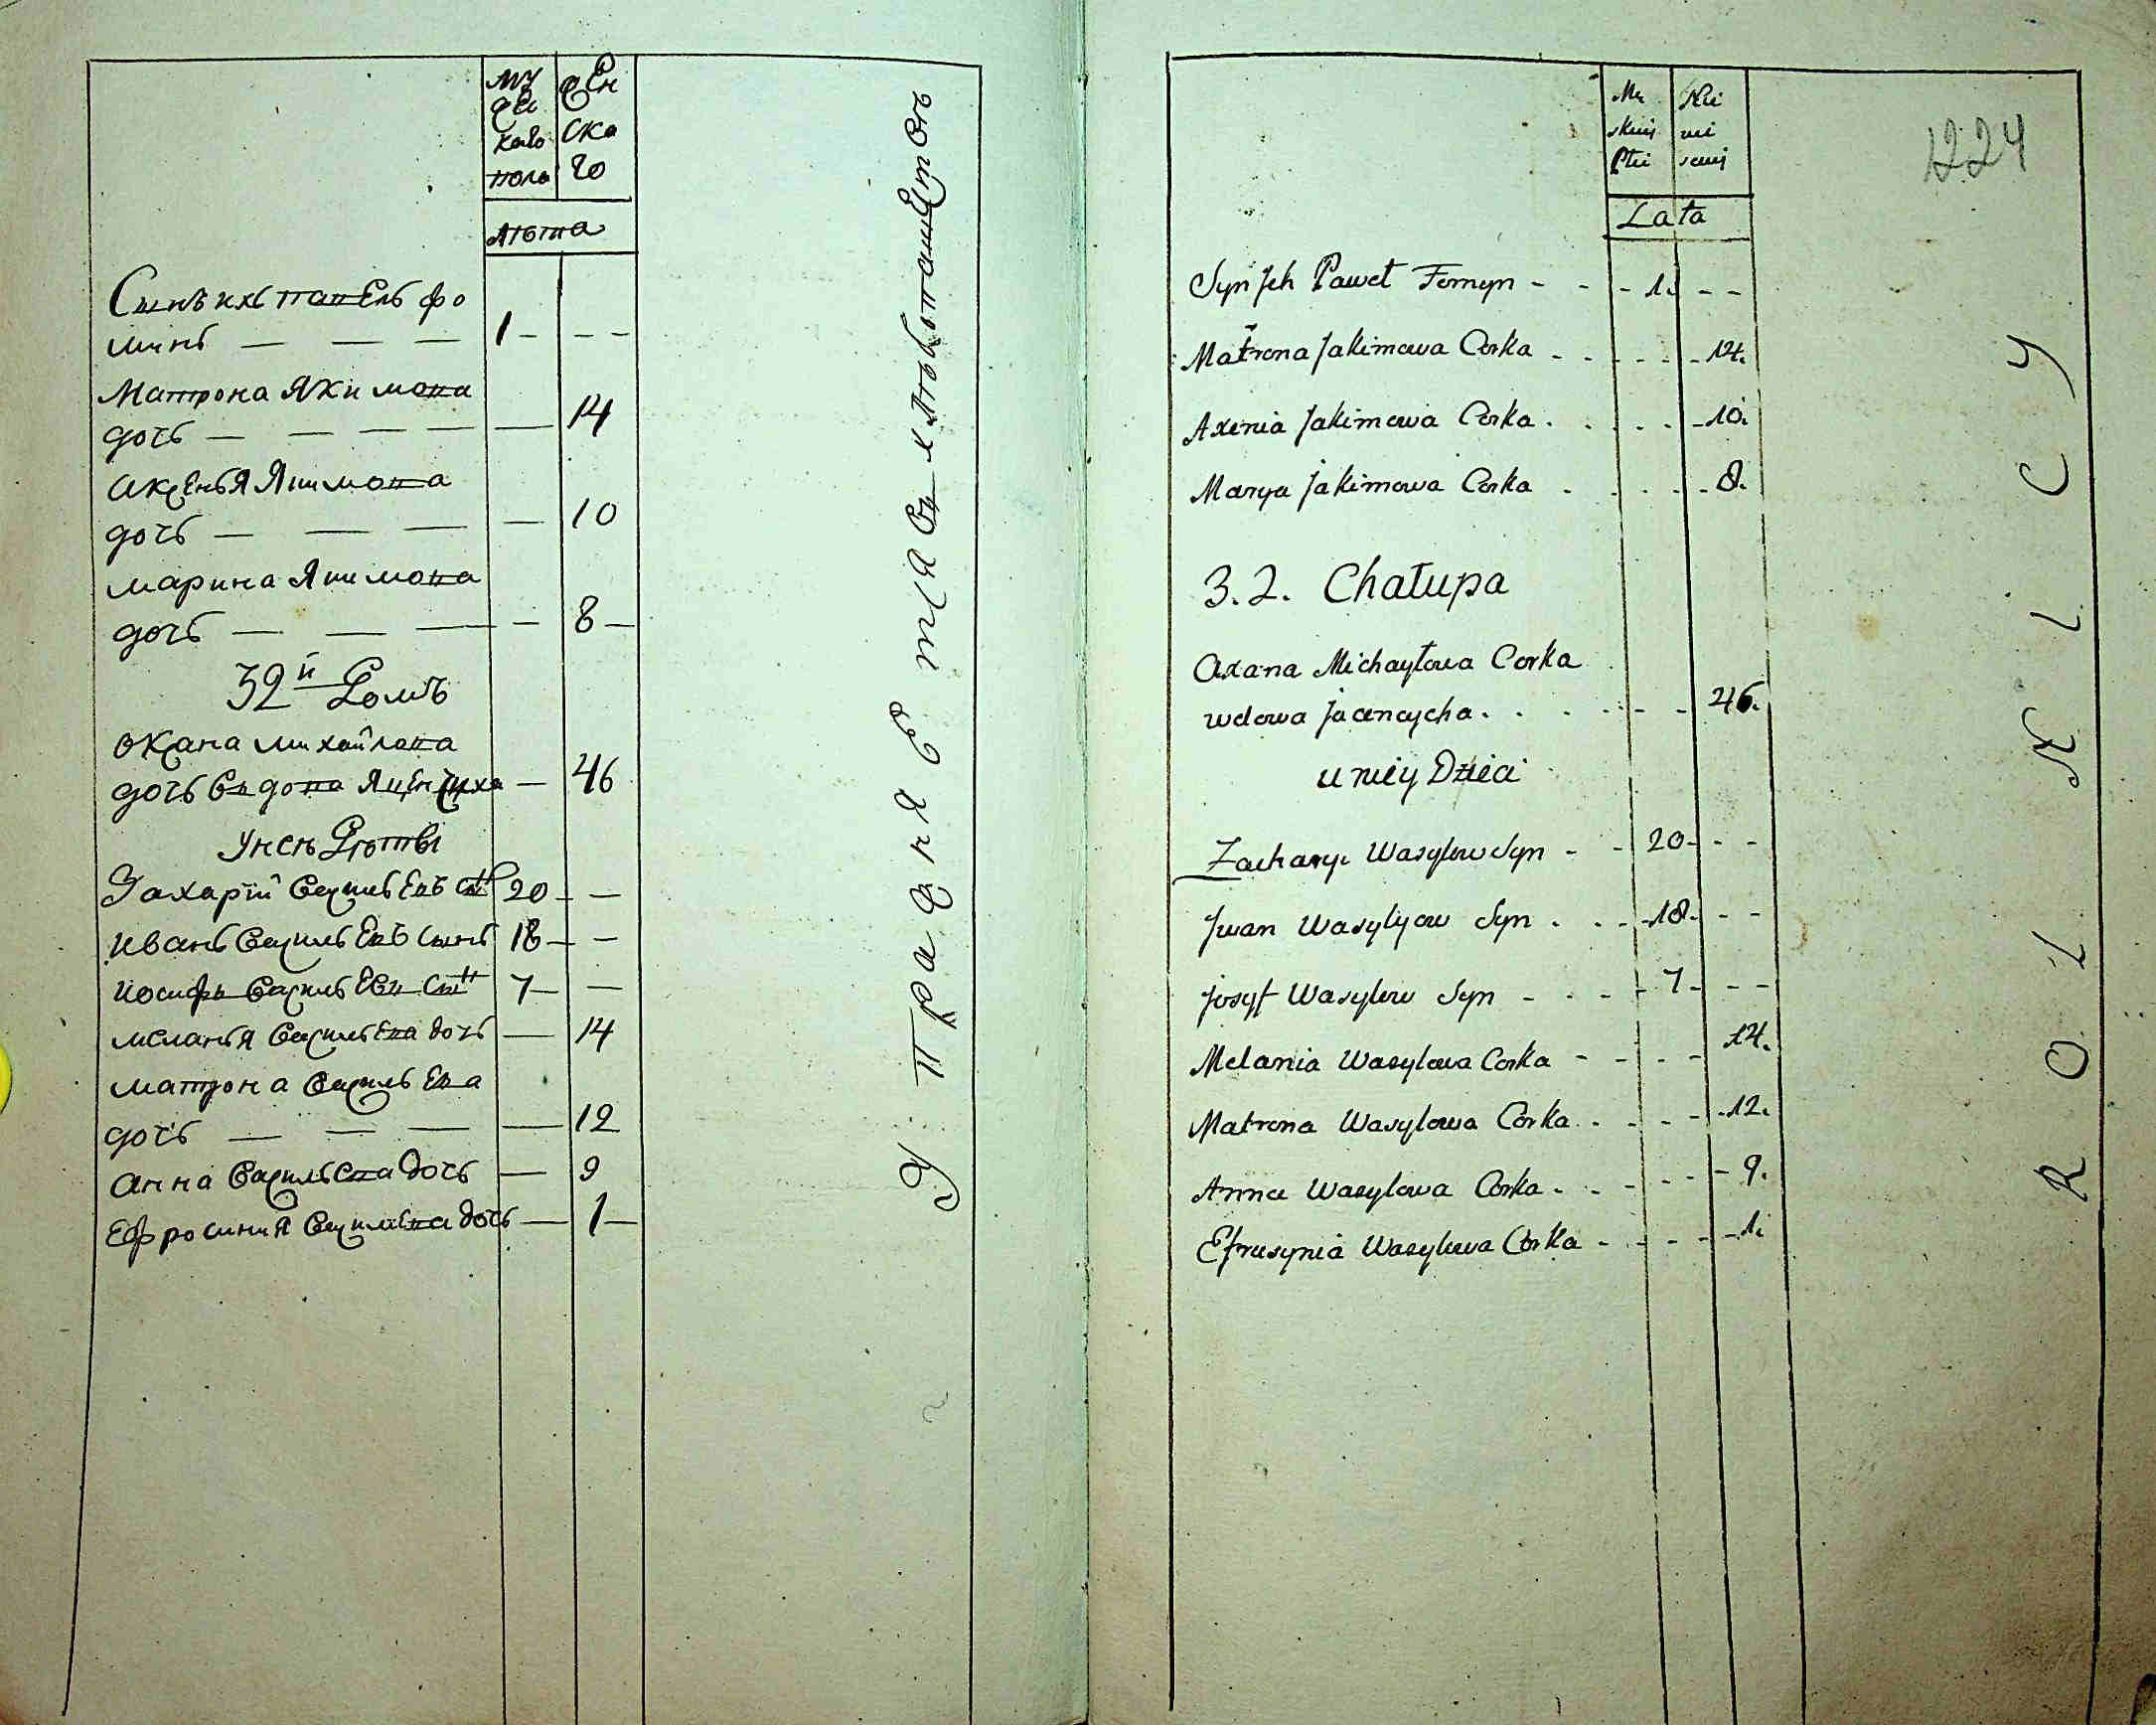 му
жес
каго
пола
жен
ска
го
лѣта
Сынъ ихъ павелъ фо
минъ — — — 1 - - - -
Матрона Якимова
дочь — — — — — 14
Аксенья Якимова
дочь — — — — 10
марина Якимова
дочь — — — — 8 —
32й Домъ
Оксана михайлова
дочь вдова Яценчиха — 46
У неи Дѣти
Захарій васильевъ сынъ 20 - —
Иванъ васильевъ сынъ 18 — —
Иосифъ васильевъ сынъ 7 — —
меланья васильева дочь — 14
матрона васильева
дочь — — — — 12
анна васильева дочь — 9
Ефросиния васильева дочь — 1 —
Упражняется въ хлѣбопашествѣ
1224
Mę
skiej
Płci
Żeń
skiej
Lata
Syn Jch Paweł Fomyn - - - 1. - -
Matrona Jakimowa Corka - . . - . - 14.
Axenia Jakimowa Corka . . . . . - 10.
Marya Jakimowa Corka . . . . - 8.
3.2. Chałupa
Oxana Michayłowa Corka
wdowa Jacencycha . . . - - - 46.
u niey Dzieci
Zacharyi Wasylow Syn - - 20 - - -
Jwan Wasylyow Syn . . . - 18. - -
Josyf Wasylew Syn - . - - 7 - - -
Melania Wasylowa Corka - - - - 14.
Matrona Wasylowa Corka . . - - - 12.
Anna Wasylowa Corka . . - - - - 9.
Efrusynia Wasylowa Corka - - - - - 1.
ROLNICY